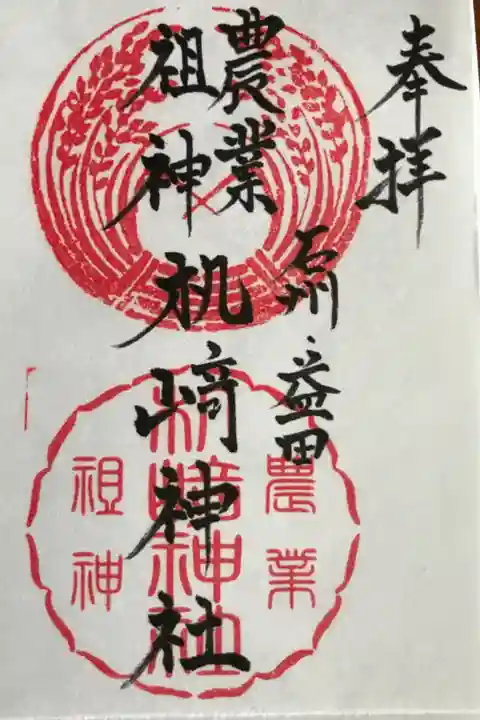 奉拝
石州 益田
農業
祖神
机﨑神社
農業
机﨑神社
祖神